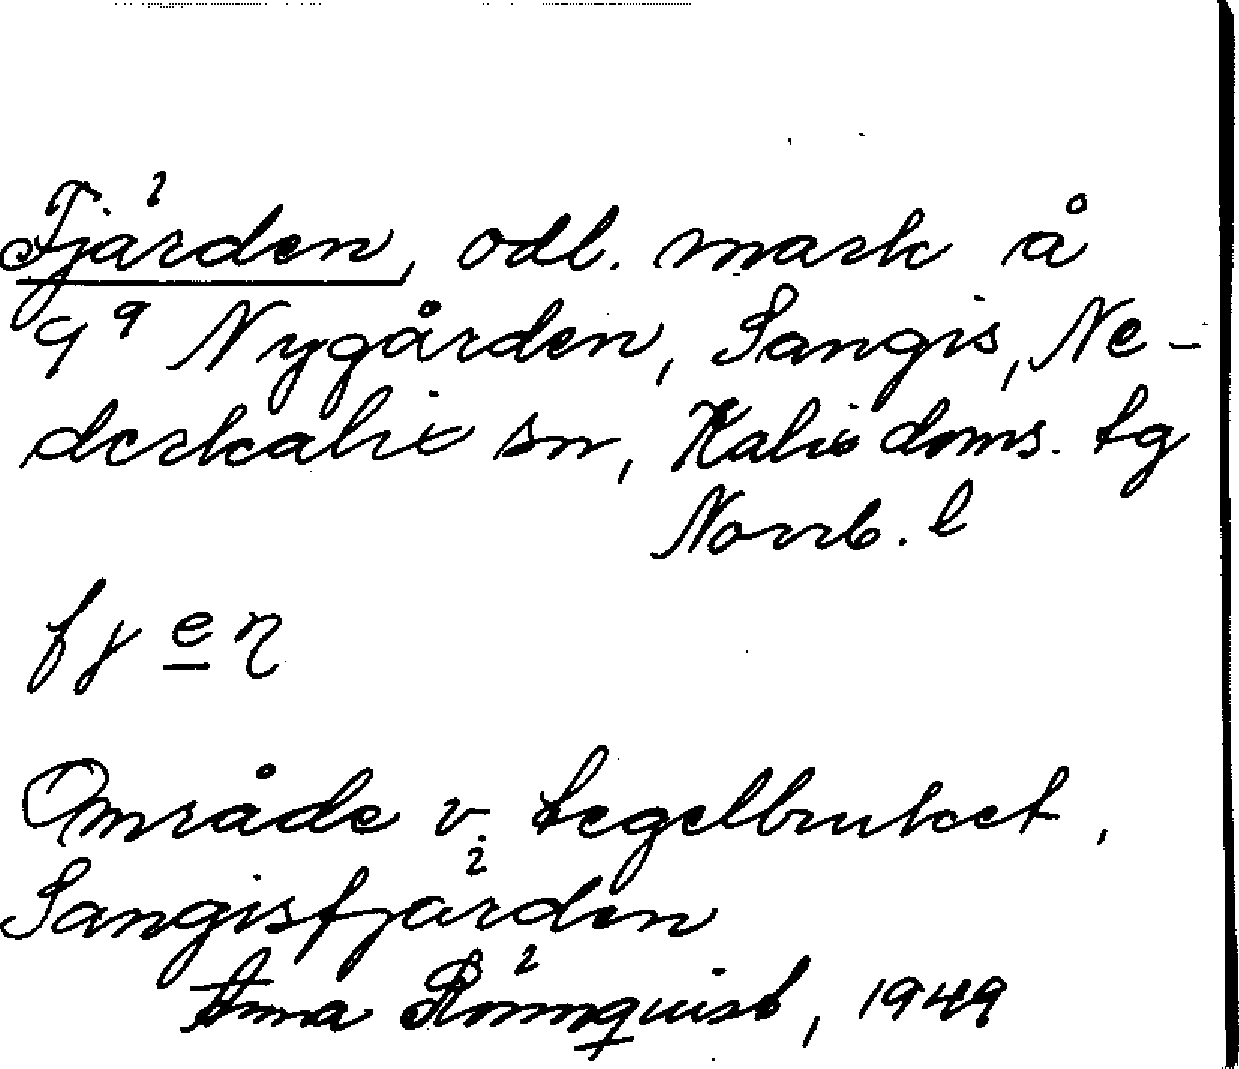 Fjärden, odl. mark å
9⁹ Nygården, Sangis, Ne-
derkalix sn, Kalix doms. tg
Norrb. l
fj e n
Område v. tegelbruket,
Sangisfjärden
Anna Rönnquist, 1949